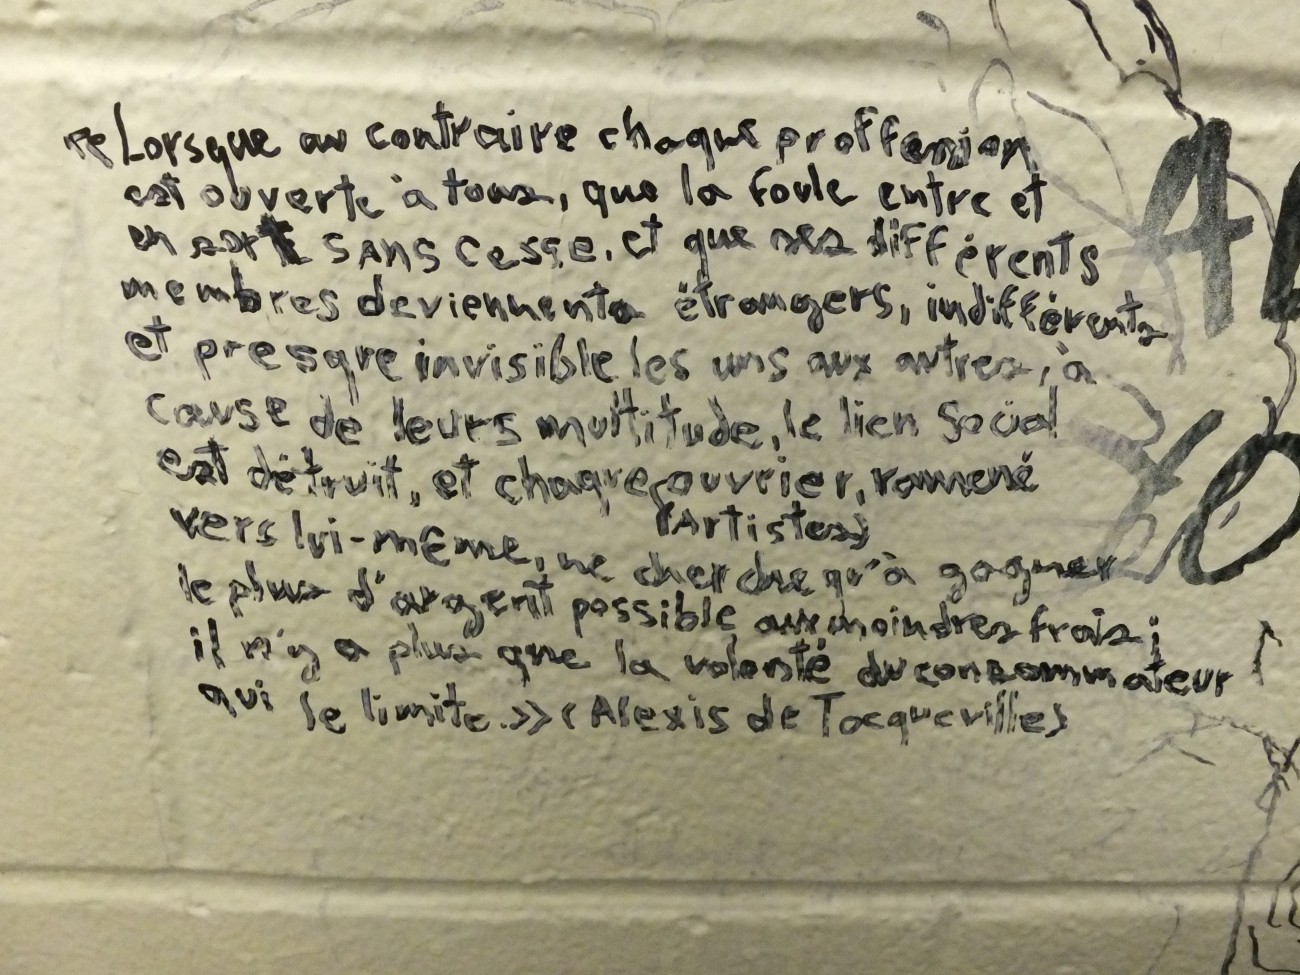 « Lorsque au contraire chaque proffession
est ouverte à tous, que la foule entre et
en sort sans cesse, et que ses différents
membres deviennents étrangers, indifférents
et presque invisible les uns aux autres, à
cause de leurs multitude, le lien social
est détruit, et chaque ouvrier, ramené
(Artistes)
vers lui-même, ne cherche qu'à gagner
le plus d'argent possible aux moindres frais;
il n'y a plus que la volonté du consommateur
qui le limite.» (Alexis de Tocqueville)